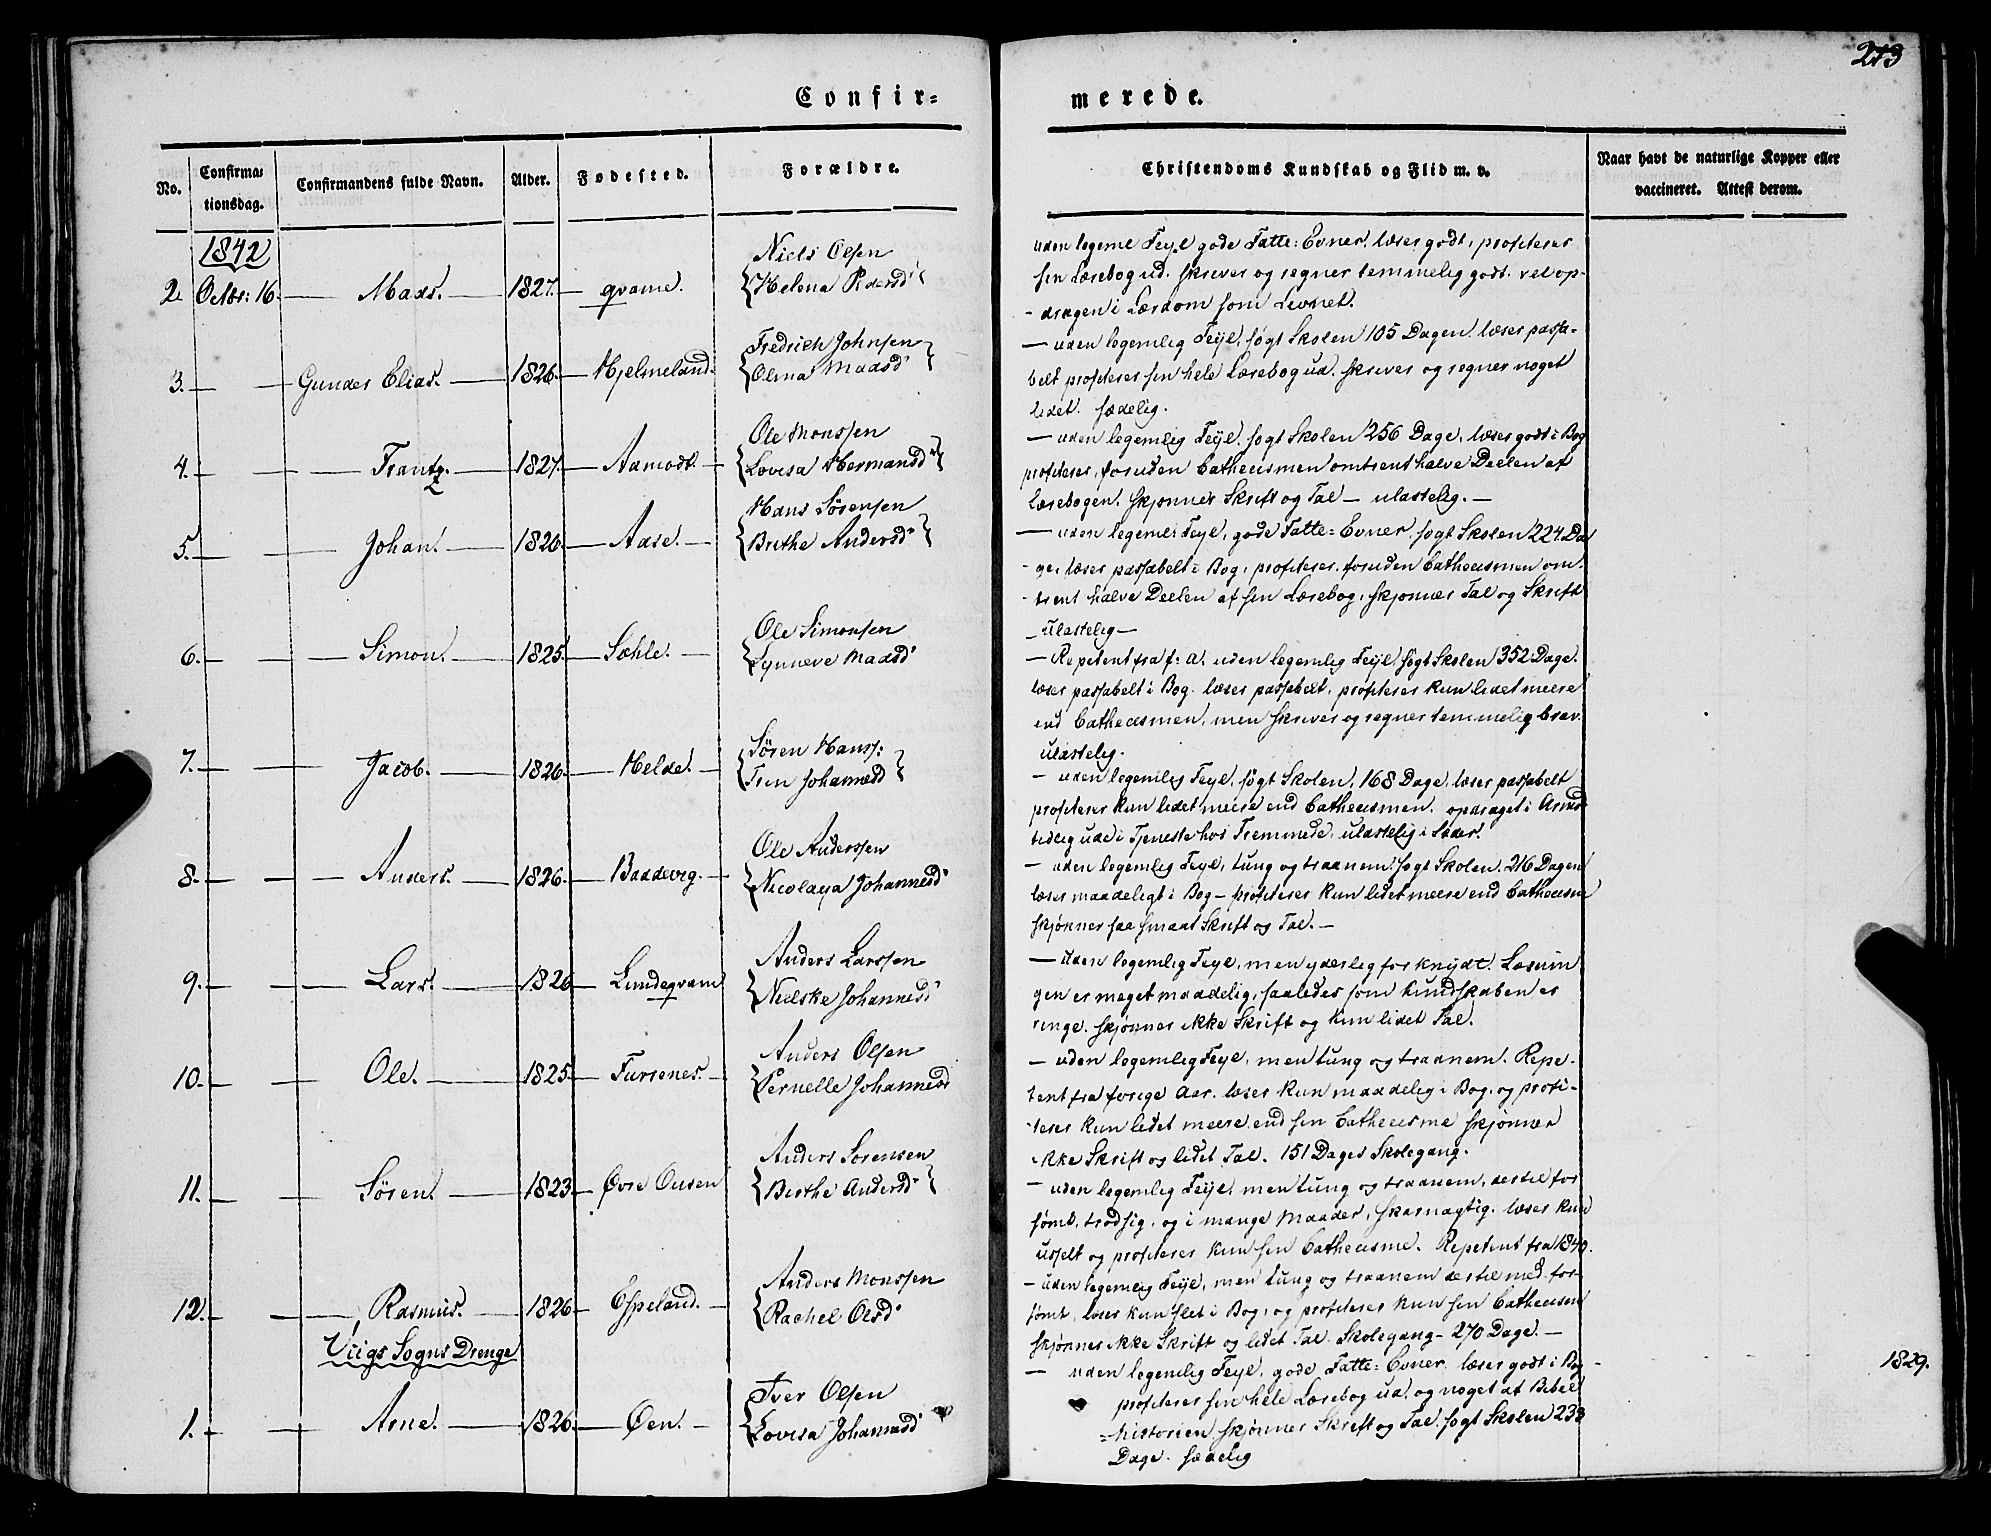 213
Confir=
merede.
No.
Confirma=
tionsdag.
Confirmandens fulde Navn.
Alder.
Fødested.
Forældre.
Christendoms Kundskab og Flid m. v.
Naar havt de naturlige Kopper eller
vaccineret. Attest derom.
1842
2. Octbr: 16. — Mads. — 1827. — qvame. Niels Olsen
Helena Pedersd
uden legeml Feyl gode Fatte=Evner. læser godt, profiterer
sin Læsebog ud. skriver og regner temmelig godt. vel op-
-dragen i Lærdom som Levnet.
3. — — Gunder Elias. — 1826. — Hjelmeland. Fredrich Johnsen
Olina Madsd
— uden legemlig Feyl, søgt Skolen 105 Dagen. læser passa-
belt profiterer sin hele Læsebog ud. skriver og regner noget
lidet. sædelig.
4. — — Frantz. — 1827. — Aamodt. — Ole Monssen
Lovisa Hermansd
— uden legemlig Feyl. søgt Skolen 256 Dage, læser godt i Bog
profiterer, foruden Cathecismen omtrent halve Deelen af
læsebogen. skjønner Skrift og Tal — ulastelig. —
5. — — Johan. — 1826. — Aase. — Hans Sørensen
Birthe Andersd
— uden legeml: Feyl, gode Fatte=Evner. søgt Skolen 224. Da
-ge, læser passabelt i Bog, profiterer. foruden Cathecismen om-
-trent halve Deelen af sin Læsebog, skjønner Tal og Skrift
— Ulastelig —
6. — — Simon. — 1825. — Sæhle. — Ole Simonsen
Synneve Madsd
— Repetent fra f: A. uden legemlig Feyl søgt Skolen 352 Dage.
læser passabelt i Bog. læser passabelt, profiterer kun lidet meere
end Cathecismen, men skriver og regner temmelig brav.
ulastelig.
7. — — Jacob. — 1826. — Helde. — Søren Hanss:
Johannesd
— uden legemlig Feyl, søgt Skolen, 168 Dage, læser passabelt
profiterer kun lidet meere end Cathecismen. opdraget i
tidlig ude i Tjeneste hos Fremmede, ulastelig i Sæder.
8. — — Anders. — 1826. — Baddevig. — Ole Anderssen
Nicolaya Johannesd
— uden legemlig Feyl, tung og traanem søgt Skolen. 216 Dagen
læser maadeligt i Bog — profiterer kun lidet meere end Cathecism
skjønner saa smaat Skrift og Tal. —
9. — — Lars. — 1826 — Lundeqvam Anders Larssen
Nielske Johannesd
— uden legemlig Feyl, men yderlig forknydt. Læsnin
gen er meget maadelig, saaledes som kundskaben er
ringe. skjønner ikke Skrift og kun lidet Tal.
10. — — Ole. — 1825 — Furrenes. — Anders Olsen
Pernelle Johannesd
— uden legemlig Feyl, men tung og traanem. Repe-
tent fra forige Aar. læser kun maadelig i Bog. og profi-
-terer kun lidet meere end sin Cathecisme skjønner
ikke Skrift og lidet Tal. 151 Dages Skolegang.
11. — — Søren. — 1823. — Øvre Ousen Anders Sørensen
Birthe Andersd
— uden legemlig Feyl, men tung og traanem, dertil for
sømt, trodsig, og i mange Maader, skarnagtig. læser kun
usselt og profiterer kun sin Cathecisme. Repetent fra 1840.
12. — — Rasmus. — 1826 — Espeland. — Anders Monssen
Rachel Olsd
— uden legemlig Feyl, men tung og traanem dertil med for-
sømt, læser kun slet i Bog, og profiterer kun sin Cathecism
skjønner ikke Skrift og lidet Tal. Skolegang — 270 Dage. —
Viigs Sogns Drenge
1. — — Arne. — 1826. — Øen. — Iver Olsen
Lovisa Johannesd
— uden legemlig Feyl. gode Fatte=Evner. læser godt i Bog —
profiterer sin hele Læsebog ud, og noget af Bibel
=historien skjønner Skrift og Tal. søgt Skolen 238
Dage. sædelig
1829.